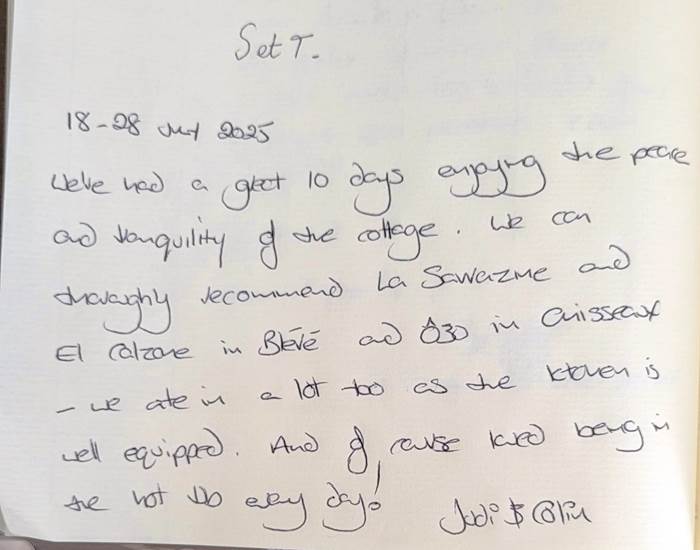 Set T.
18-28 July 2025
We've had a great 10 days enjoying the peace
and tranquility of the cottage. We can
thoroughly recommend La and
El Calzone in Blévé and Ô30 in Cuisseaux
- we ate in a lot too as the kitchen is
well equipped. And of course loved being in
the hot tub every day!
Jodi & Colin